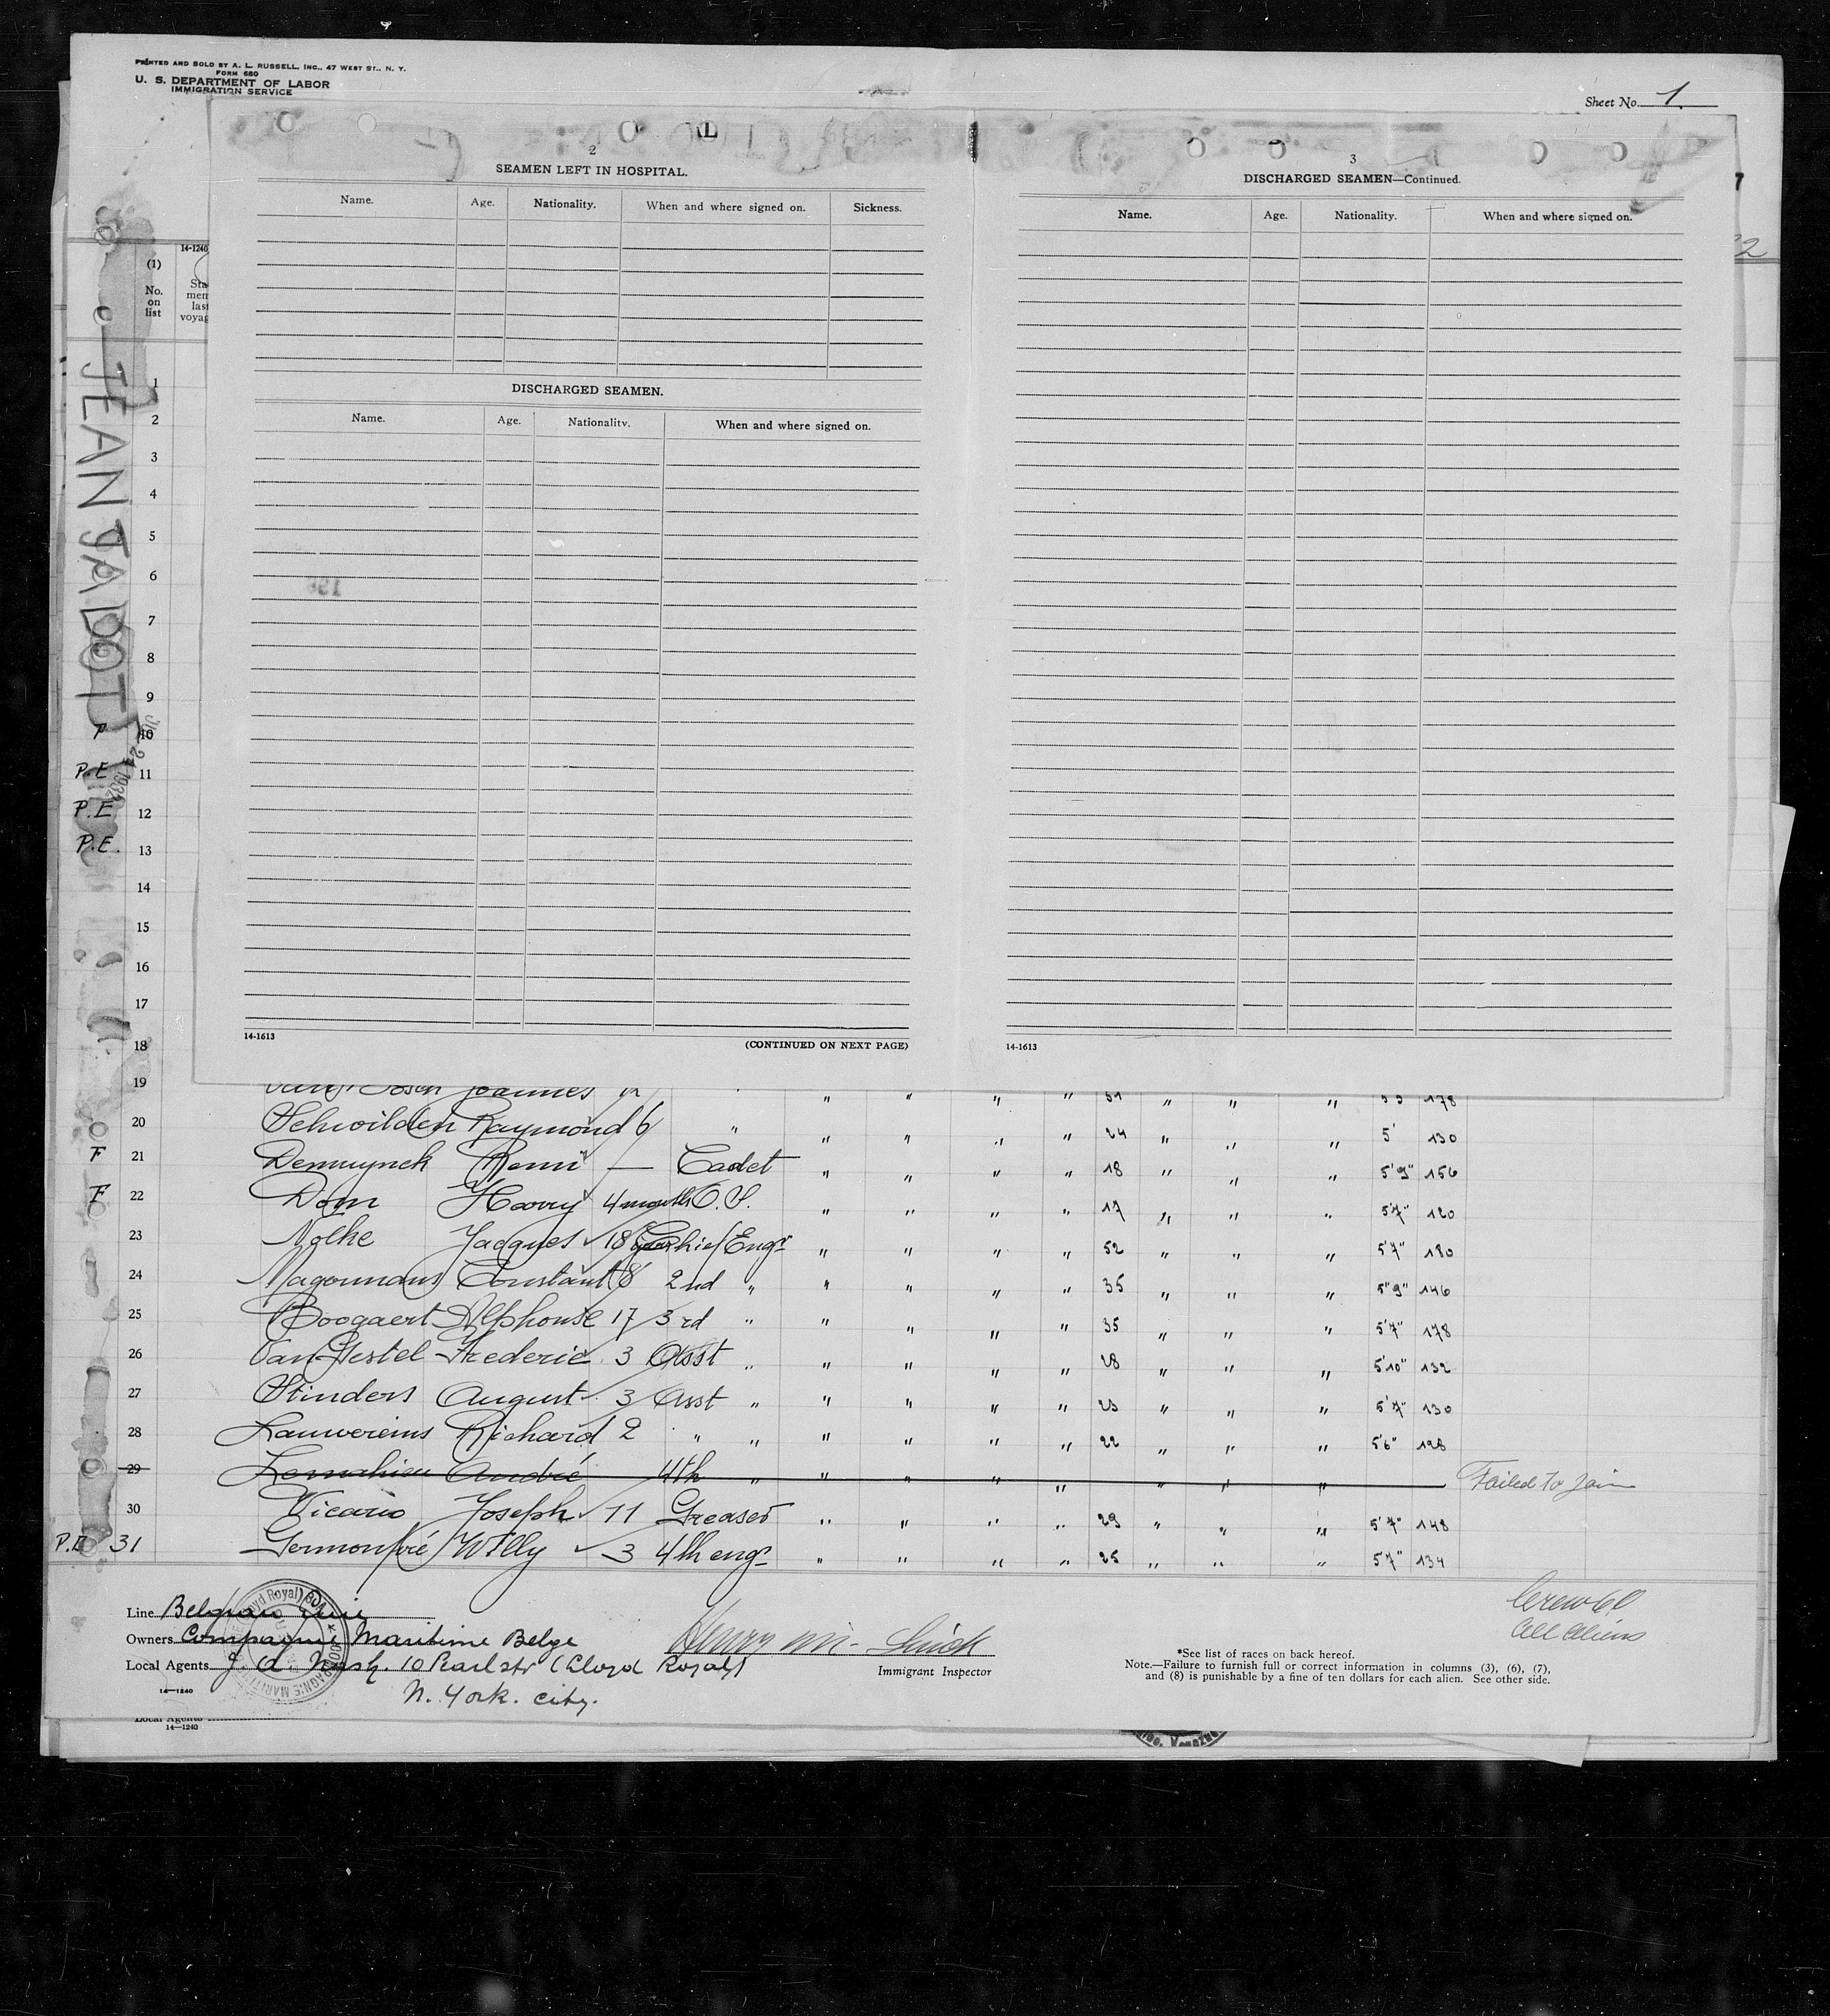 PRINTED AND SOLD BY A. L. RUSSELL, INC., 47 WEST ST., N. Y.
FORM 680
U. S. DEPARTMENT OF LABOR
IMMIGRATION SERVICE
Sheet No. 1.
JEAN JADOT
14-1240
(1)
No. on list
2
SEAMEN LEFT IN HOSPITAL.
Name. Age. Nationality. When and where signed on. Sickness.
DISCHARGED SEAMEN.
Name. Age. Nationality. When and where signed on.
14-1613
(CONTINUED ON NEXT PAGE)
3
DISCHARGED SEAMEN—Continued.
Name. Age. Nationality. When and where signed on.
14-1613
1
2
3
4
5
6
7
8
9
10
P.E 11
P.E 12
P.E. 13
14
15
16
17
18
19 Joannes " " " " 31 " " " 178
20 Schwilden Raymond 6 " " " " " 24 " " " 5' 130
F 21 Demuynck Remi — Cadet " " " " 18 " " " 5'9" 156
F 22 Dom Harry 4 month O.S. " " " " 17 " " " 5'7" 120
23 Nolke Jacques 18 Chief Engr " " " " 52 " " " 5'7" 180
24 Magounans Constant 8 2nd " " " " " 35 " " " 5"9" 146
25 Boogaert Alphonse 17 3rd " " " " " 35 " " " 5'7" 178
26 Van Gestel Frederic 3 Asst " " " " " 28 " " " 5'10" 132
27 Stinders August 3 Asst " " " " " 23 " " " 5'7" 130
28 Lauwereins Richard 2 " " " " " " 22 " " " 5'6" 128
29 Lemahieu André 4th " " " " " " " " Failed to join
30 Vicario Joseph 11 Greaser " " " " 29 " " " 5'7" 148
P.E 31 Germonpré Willy 3 4th engr " " " " 25 " " " 5'7" 134
Line Belgian Line
Owners Compagnie Maritime Belge
Local Agents J. A. Nash. 10 Pearl str (Lloyd Royal)
N. York. city.
14—1240
Immigrant Inspector
Crew 61
All Aliens
*See list of races on back hereof.
Note.—Failure to furnish full or correct information in columns (3), (6), (7),
and (8) is punishable by a fine of ten dollars for each alien. See other side.
Local Agents
14—1240